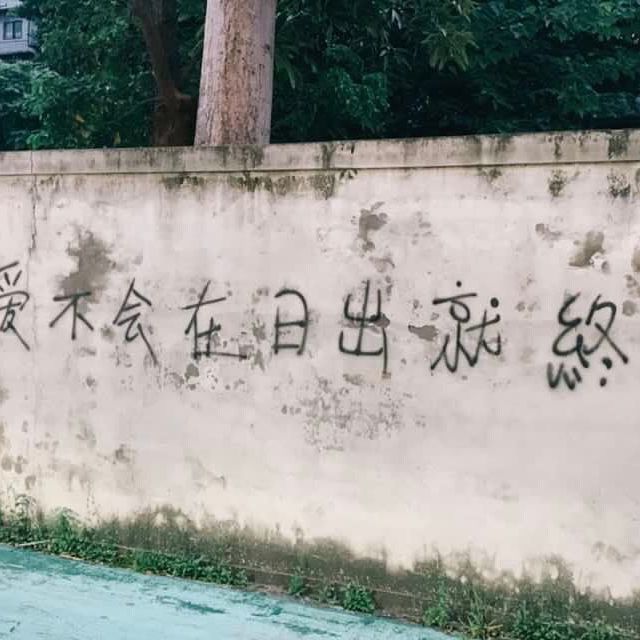 爱不会在日出就終